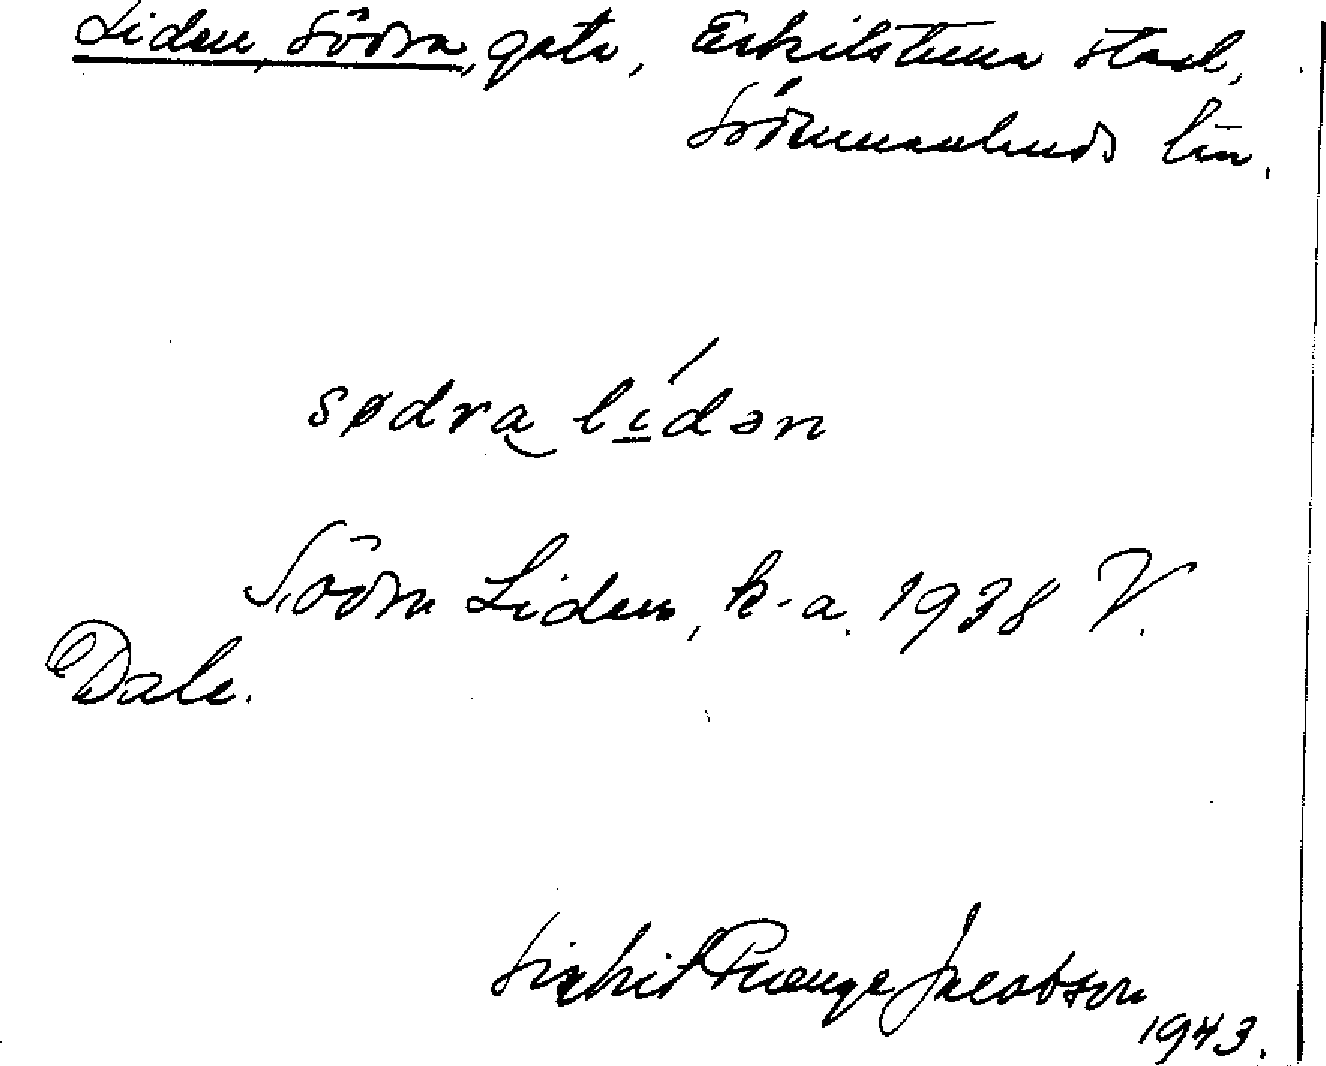 Liden, Södra, gata, Eskilstuna stad,
Södermanlands län.
sødra lídən
Södra Liden, k-a. 1938 V.
Dale.
Sigrid Range Jacobson
1943.